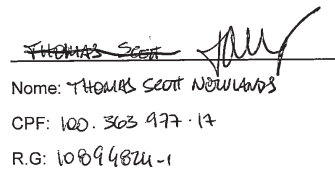 THOMAS SCOTT
Nome: THOMAS SCOTT NEWLANDS
CPF: 100.363 977.17
R.G: 10894824-1